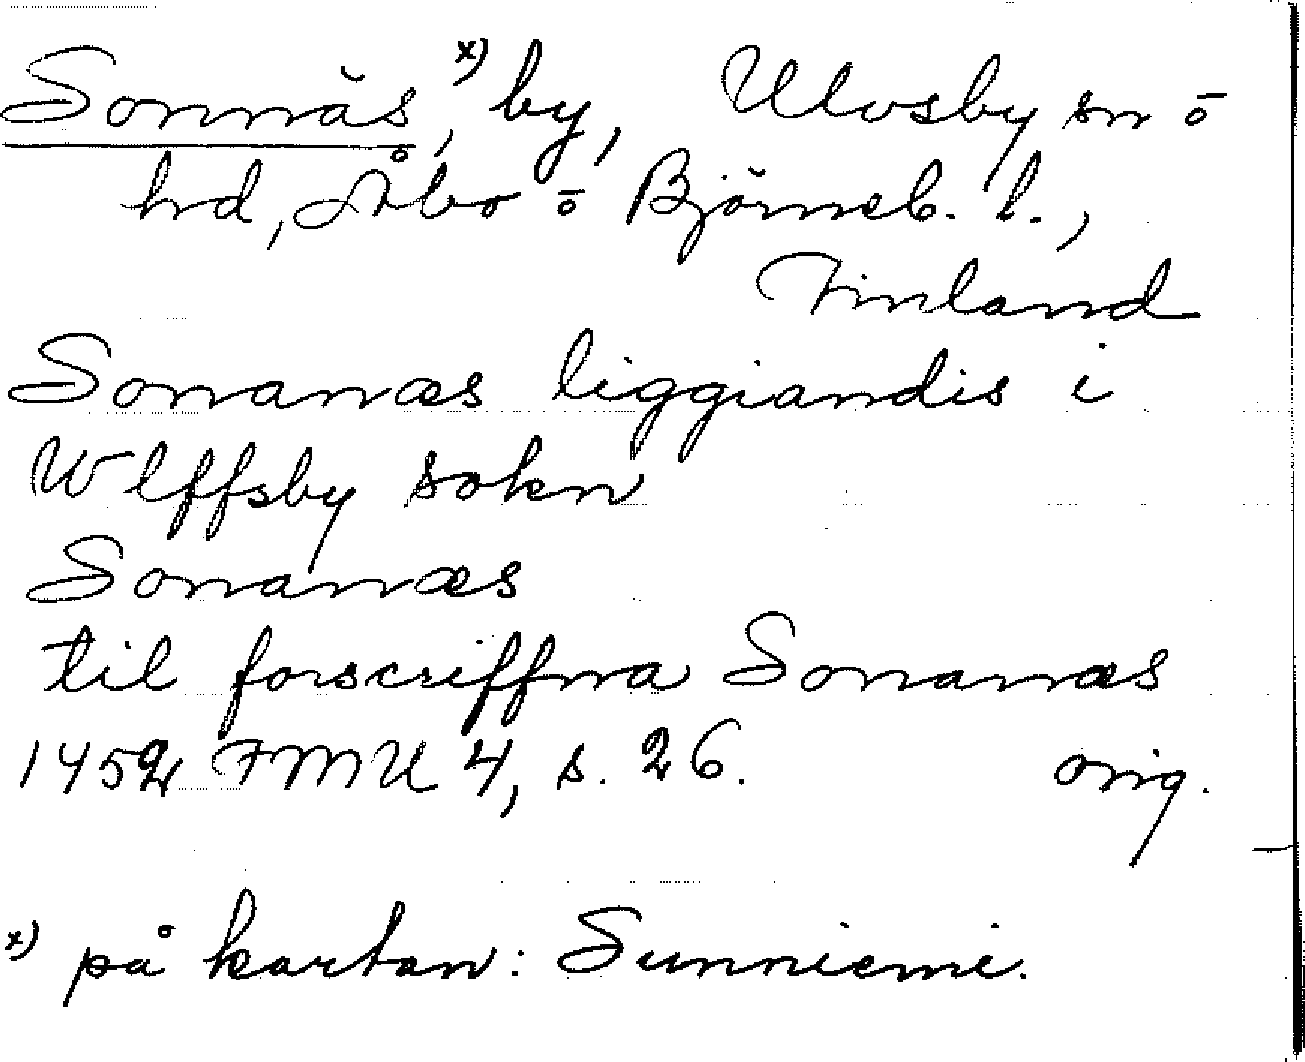 Sonnäs,ˣ⁾ by, Ulvsby sn o
hd, Åbo o Björneb. l.,
Finland
Sonanæs liggiandis i
Wlffsby sokn
Sonanæs
til forscriffna Sonanæs
1452 FMU 4, s. 26. orig.
x) på kartan: Sunniemi.